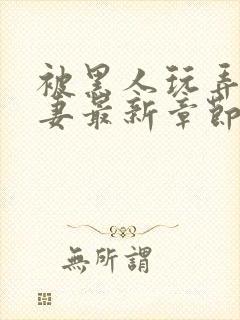 被黑人玩弄
妻最新章節
無所謂